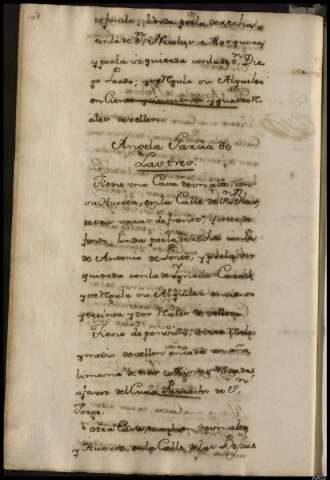 de fondo; linda por la derecha
con la de Dn. Nicolas Mosquera
y por la izquierda con la de Dn. Die
go Pardo; y se regula su Alquiler
en Ciento cinquenta y quatro R
ales de vellon.
Angela Garcia de
Lastres.
Tiene una Casa de un alto, con
su Huerta, en la Calle de
de seis varas de frente, y ocho de
fondo, linda por la derecha con la
de Antonio de Ponte, y por la iz
quierda con la de Ignacio
y se regula su Alquiler en ciento
y treinta y dos Reales de vellon.
Tiene de pension,
y medio de vellon en cada un año,
limosna de
a favor del Cura Parrocho de S.
Jorge.
Otra Casa, tambien de un alto,
y Huerta, en la Calle de